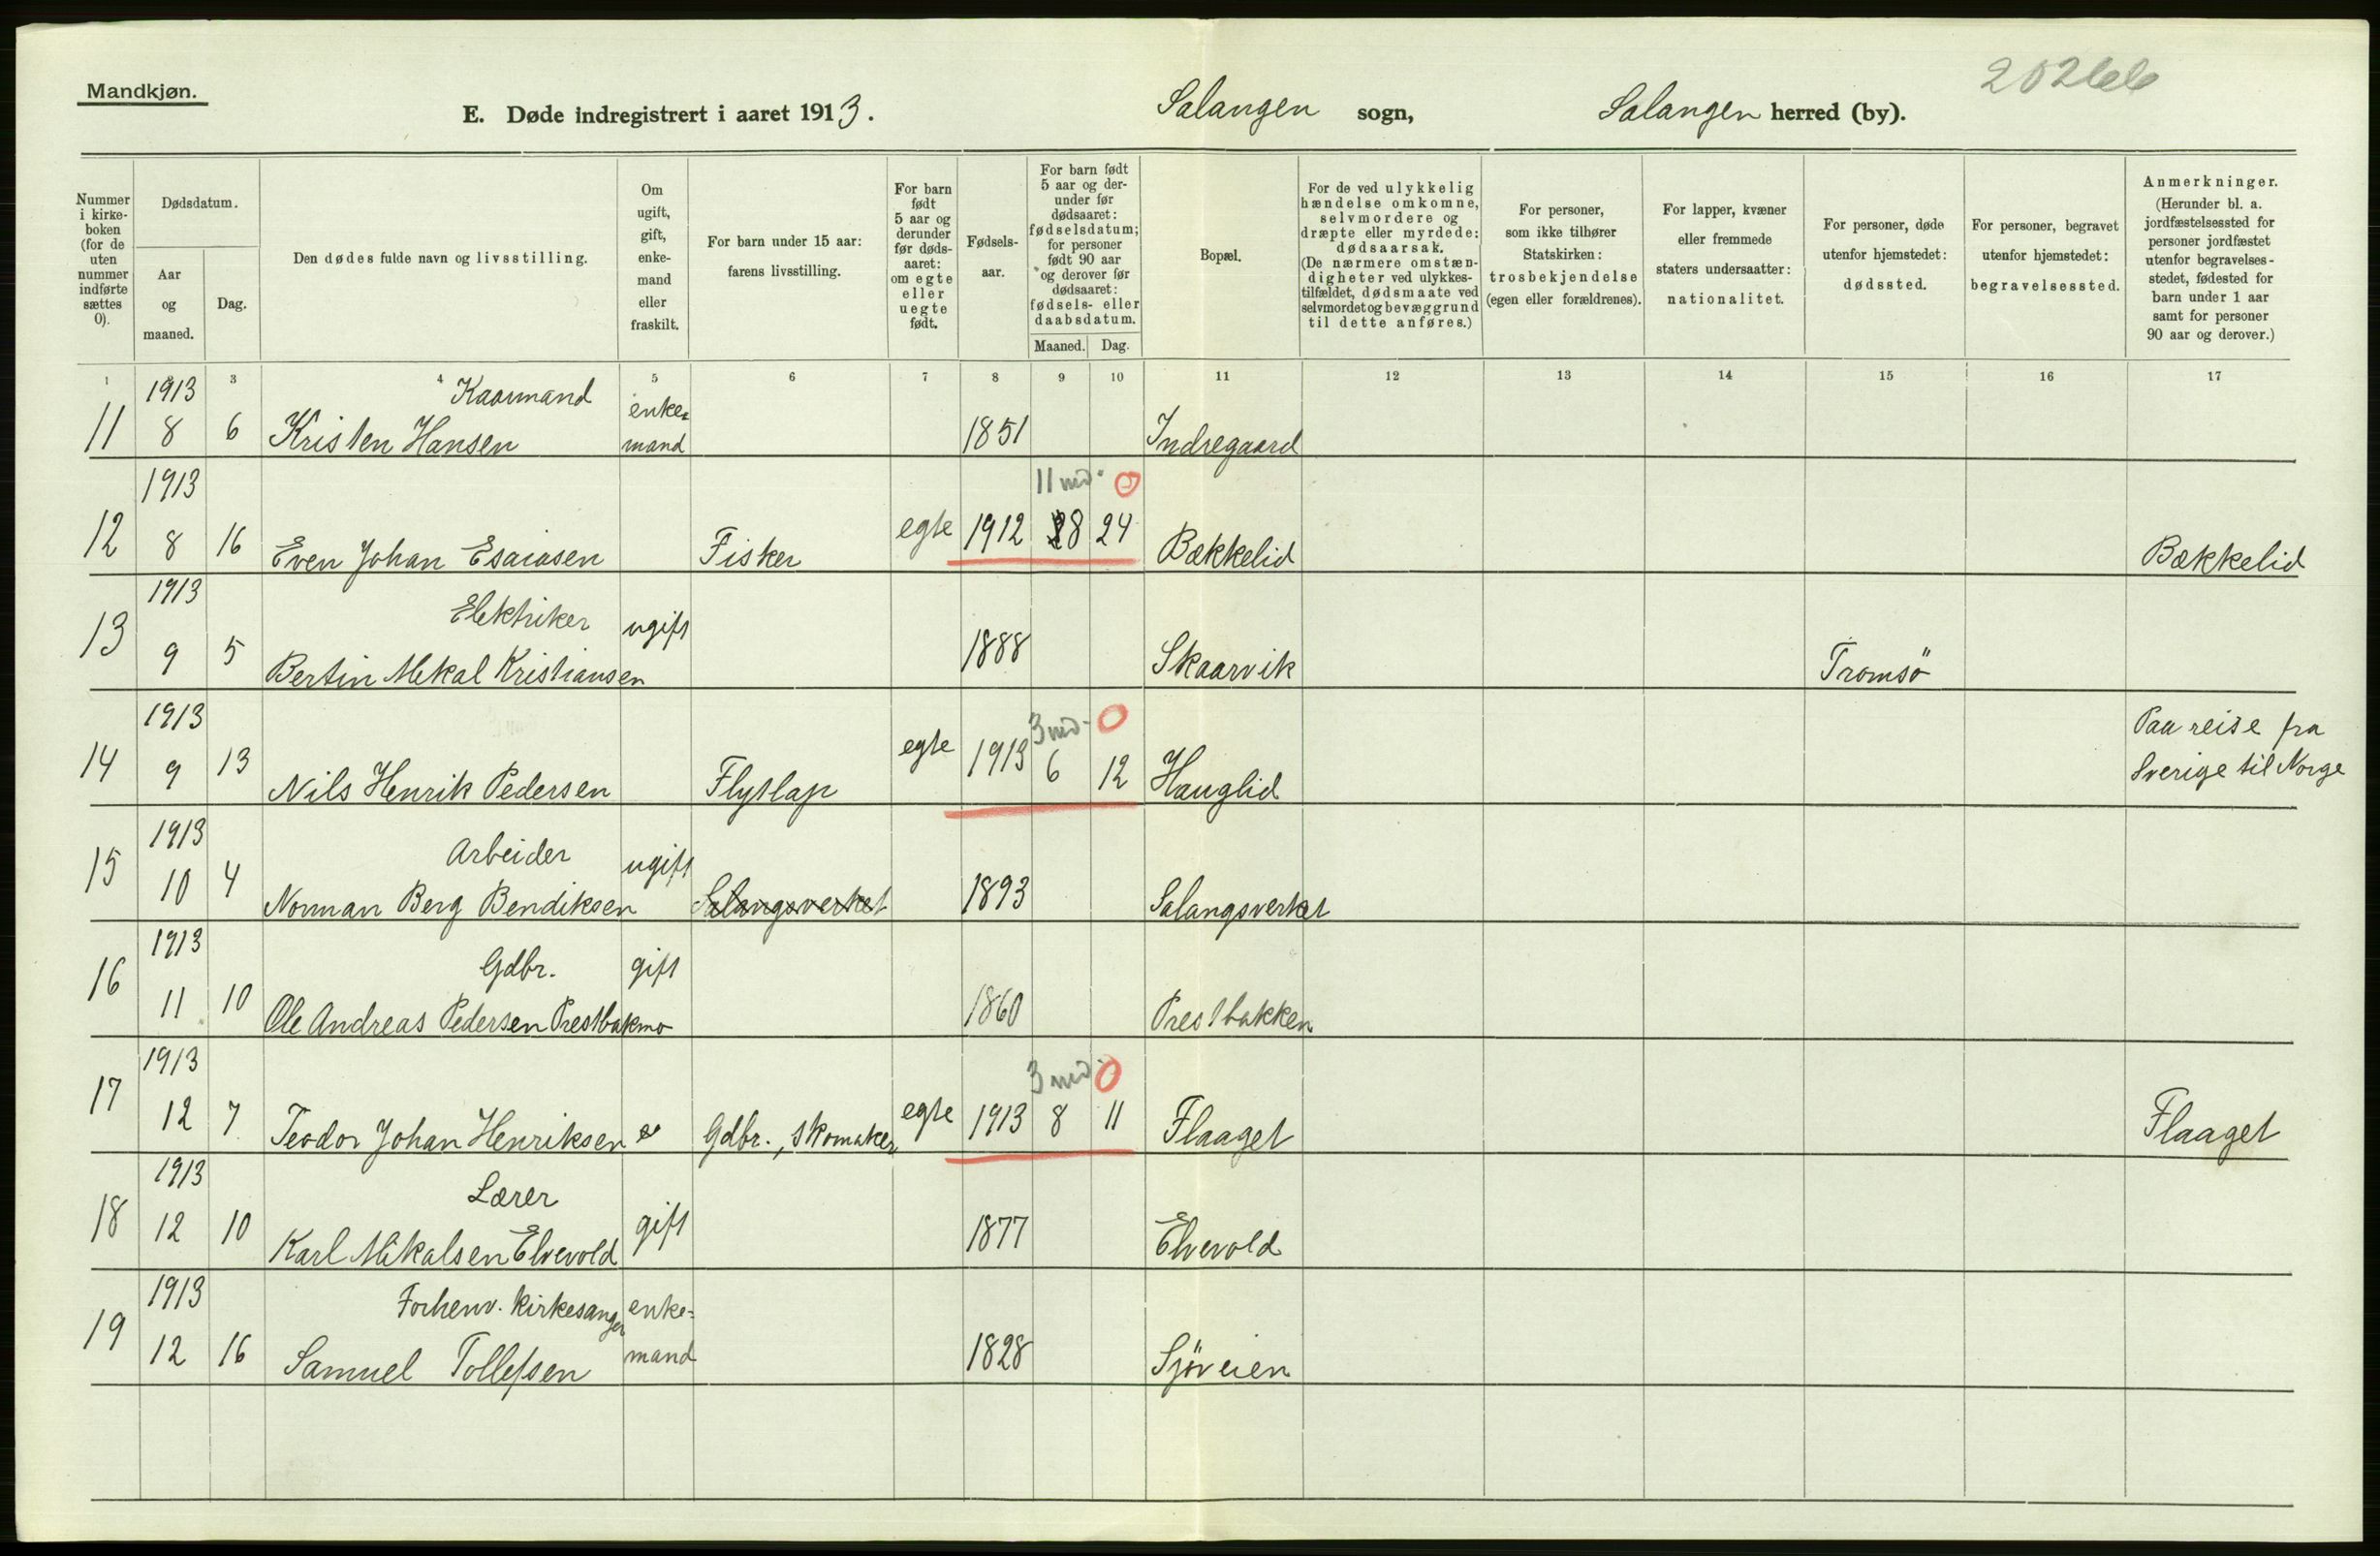 Mandkjøn.
20266
E. Døde indregistrert i aaret 1913. Salangen sogn, Salangen herred (by).
Nummer i kirke- boken (for de uten nummer indførte sættes 0).
Dødsdatum.
Aar og maaned.
Dag.
Den dødes fulde navn og livsstilling.
Om ugift, gift, enke- mand eller fraskilt.
For barn under 15 aar: farens livsstilling.
For barn født 5 aar og derunder før døds- aaret: om egte eller uegte født.
Fødsels- aar.
For barn født 5 aar og der- under før dødsaaret: fødselsdatum; for personer født 90 aar og derover før dødsaaret: fødsels- eller daabsdatum.
Maaned. Dag.
Bopæl.
For de ved ulykkelig hændelse omkomne, selvmordere og dræpte eller myrdede: dødsaarsak. (De nærmere omstæn- digheter ved ulykkes- tilfældet, dødsmaate ved selvmordet og bevæggrund til dette anføres.)
For personer, som ikke tilhører Statskirken: trosbekjendelse (egen eller forældrenes).
For lapper, kvæner eller fremmede staters undersaatter: nationalitet.
For personer, døde utenfor hjemstedet: dødssted.
For personer, begravet utenfor hjemstedet: begravelsessted.
Anmerkninger. (Herunder bl. a. jordfæstelsessted for personer jordfæstet utenfor begravelses- stedet, fødested for barn under 1 aar samt for personer 90 aar og derover.)
1 3 4 5 6 7 8 9 10 11 12 13 14 15 16 17
1913 Kaarmand enke=
11 8 6 Kristen Hansen mand 1851 Indregaard
1913 11 md. 0
12 8 16 Even Johan Esaiasen Fisker egte 1912 8 24 Bækkelid Bækkelid
1913 Elektriker ugift
13 9 5 Bertin Mekal Kristiansen 1888 Skaarvik Tromsö
1913 3 md. 0 Paa reise fra
14 9 13 Nils Henrik Pedersen Flytlap egte 1913 6 12 Hauglid Sverige til Norge
1913 Arbeider ugift
15 10 4 Norman Berg Bendiksen Salangsverket 1893 Salangsverket
1913 Gdbr. gift
16 11 10 Ole Andreas Pedersen Prestbakmo 1860 Prestbakken
1913 3 md 0
17 12 7 Teodor Johan Henriksen Gdbr., skomaker egte 1913 8 11 Flaaget Flaaget
1913 Lærer
18 12 10 Karl Mikalsen Elvevold gift 1877 Elvevold
1913 Forhenv. kirkesanger enke=
19 12 16 Samuel Tollefsen mand 1828 Sjöveien